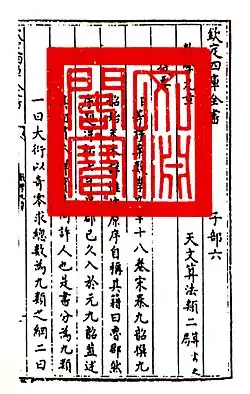 欽定四庫全書 子部六
天文算法類二算書之屬
十八卷宋秦九韶撰九
韶始末未 原序自稱其籍曰魯郡然
郡已久入於元九韶蓋述
何許人也是書分為九類
一曰大衍以奇零求總數為九類之綱二曰
文淵
閣寶